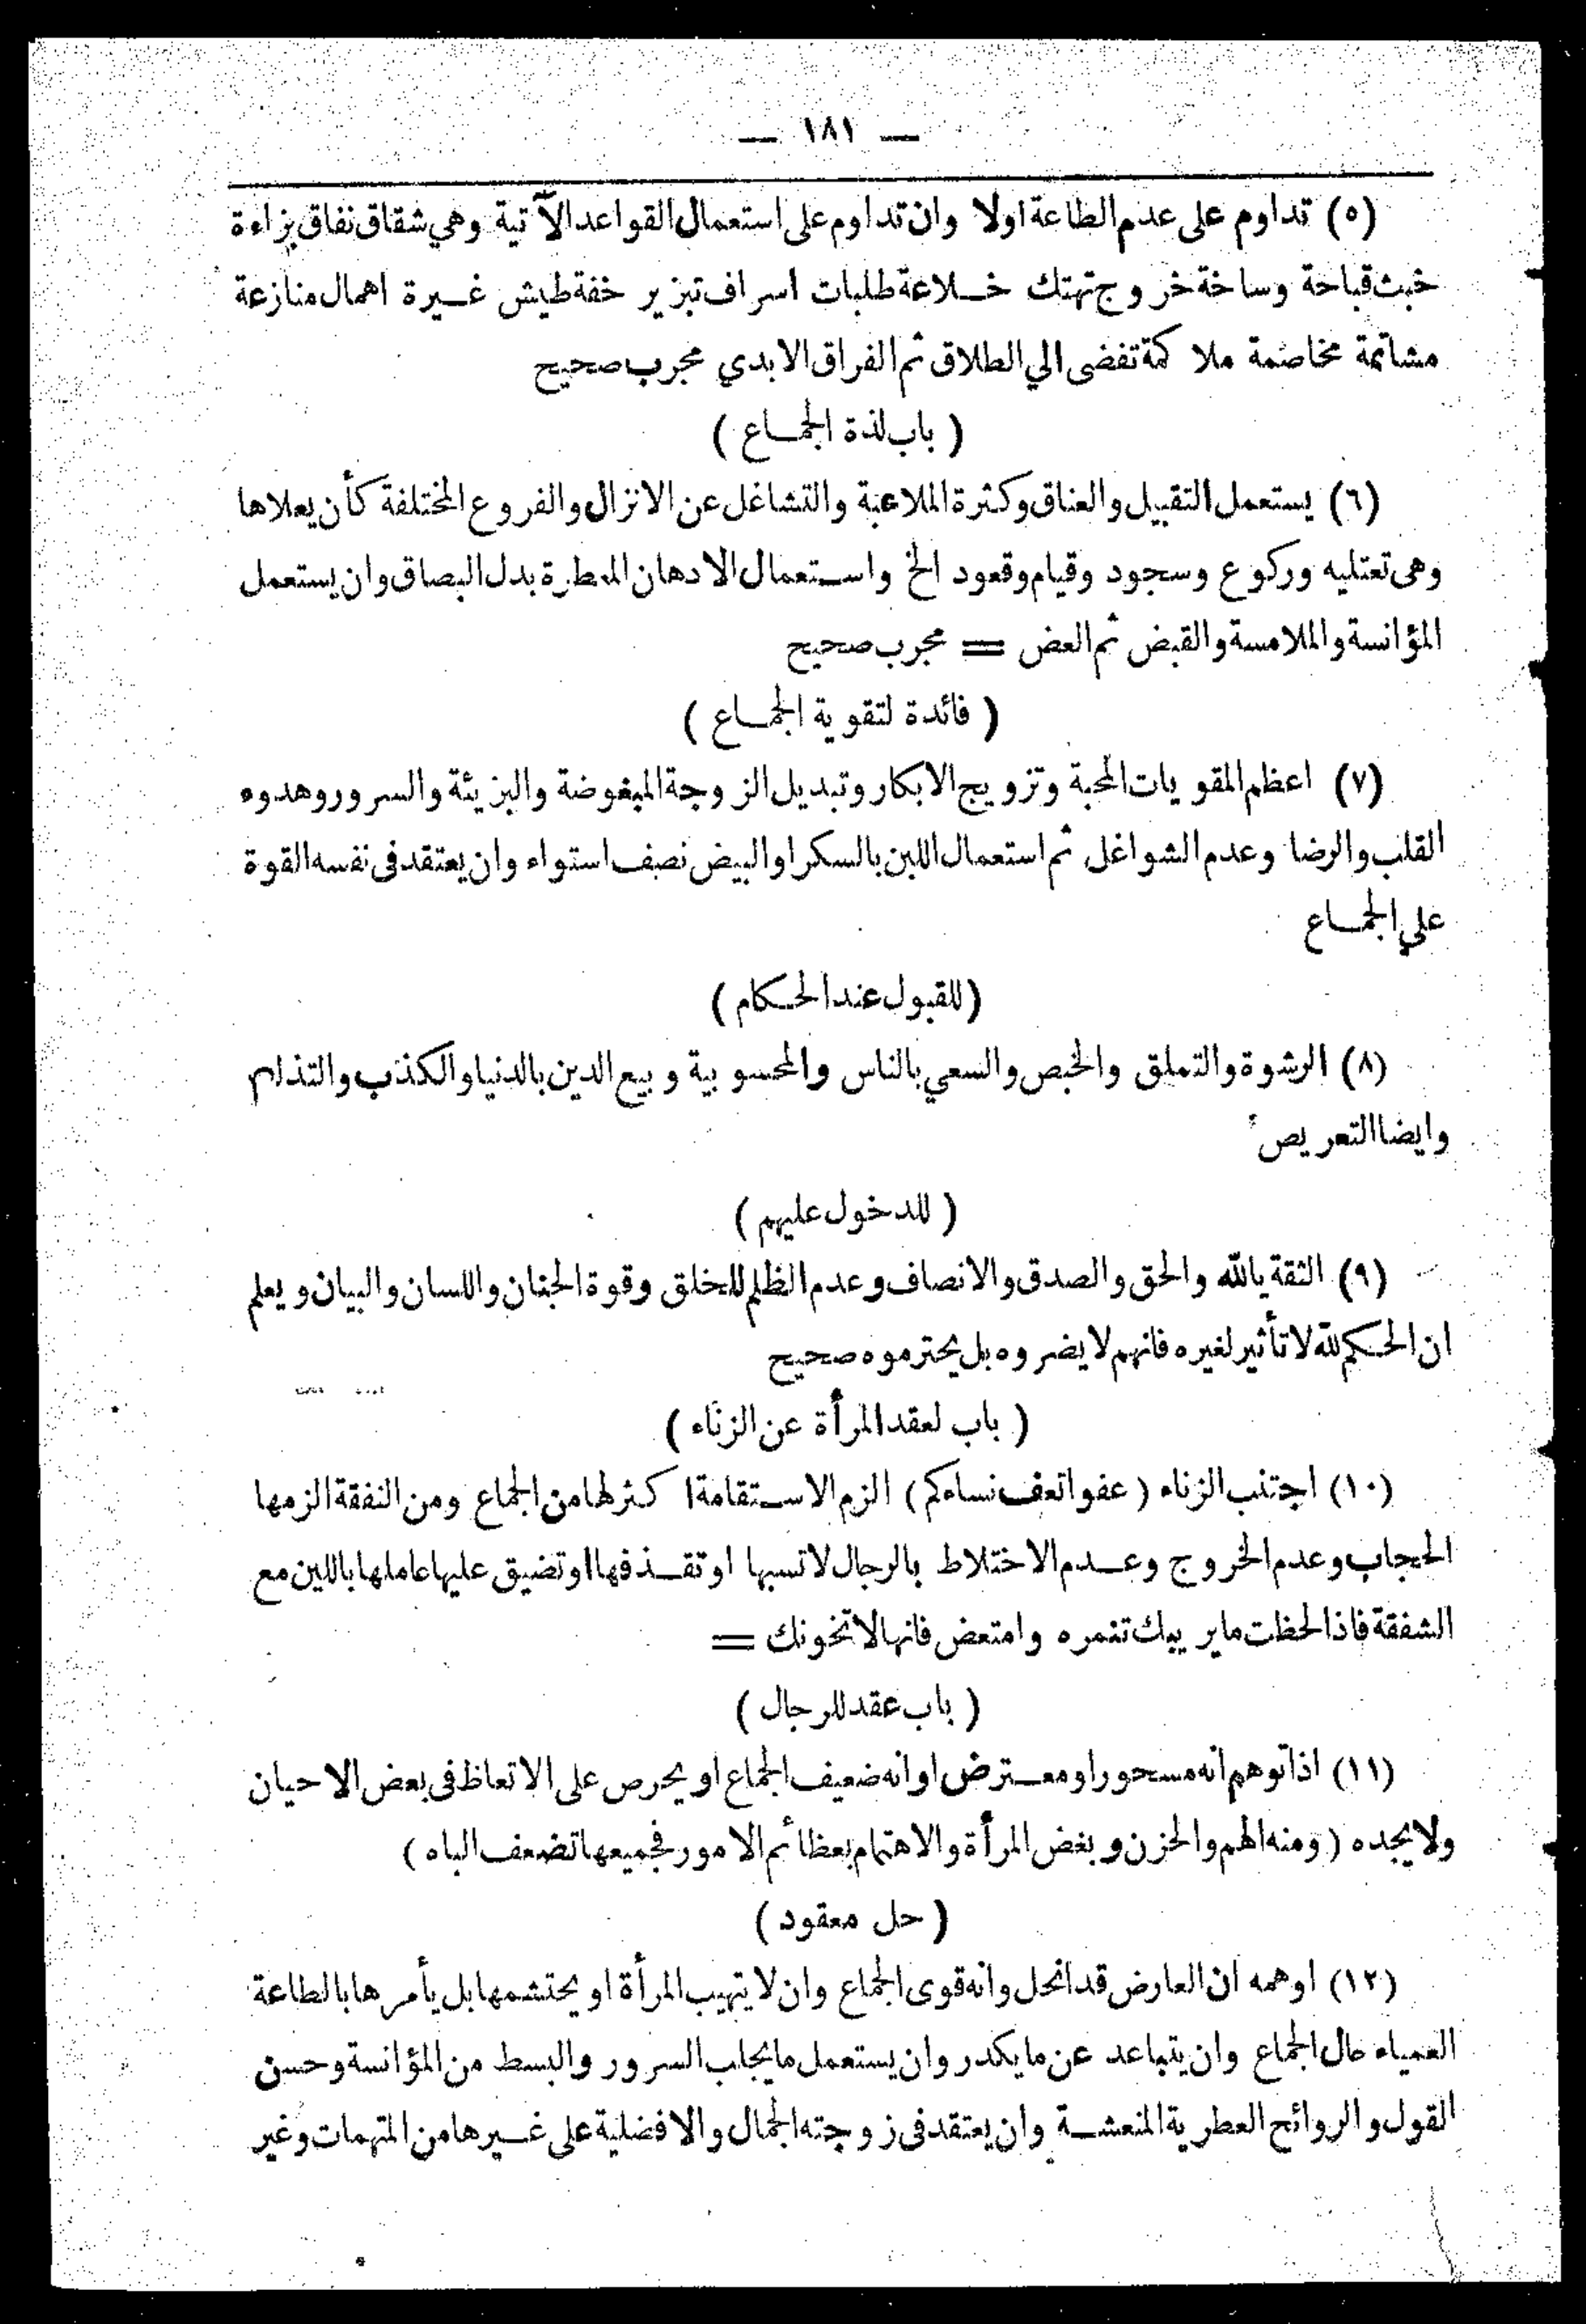 — ١٨١ —
(٥) تداوم على عدم الطاعة اولا وان تداوم على استعمال القواعد الآتية وهي شقاق نفاق بزاءة
خبث قباحة وساخة خروج تهتك خلاعة طلبات اسراف تبزير خفة طيش غيرة اهمال منازعة
مشاتمة مخاصمة ملاكمة تفضى الي الطلاق ثم الفراق الابدي مجرب صحيح
( باب لذة الجماع )
(٦) يستعمل التقبيل والعناق وكثرة الملاعبة والتشاغل عن الانزال والفروع المختلفة كأن يعلاها
وهى تعتليه وركوع وسجود وقيام وقعود الخ واستعمال الادهان المعطرة بدل البصاق وان يستعمل
المؤانسة والملامسة والقبض ثم العض = مجرب صحيح
( فائدة لتقوية الجماع )
(٧) اعظم المقويات المحبة وتزويج الابكار وتبديل الزوجة المبغوضة والبزيئة والسرور وهدوء
القلب والرضا وعدم الشواغل ثم استعمال اللبن بالسكر او البيض نصف استواء وان يعتقد فى نفسه القوة
علي الجماع
(للقبول عند الحكام)
(٨) الرشوة والتملق والخبص والسعي بالناس والمحسوبية وبيع الدين بالدنيا والكذب والتذلل
وايضا التعريص
( للدخول عليهم )
(٩) الثقة بالله والحق والصدق والانصاف وعدم الظلم للخلق وقوة الجنان واللسان والبيان ويعلم
ان الحكم لله لا تأثير لغيره فانهم لا يضروه بل يحترموه صحيح
( باب لعقد المرأة عن الزناء )
(١٠) اجتنب الزناء ( عفوا تعف نساءكم ) الزم الاستقامة اكثر لها من الجماع ومن النفقة الزمها
الحجاب وعدم الخروج وعدم الاختلاط بالرجال لا تسبها او تقذفها او تضيق عليها عاملها باللين مع
الشفقة فاذا لحظت ما يريبك تنمره وامتعض فانها لا تخونك =
( باب عقد للرجال )
(١١) اذا توهم انه مسحور او معترض او انه ضعيف الجماع او يحرص على الاتعاظ فى بعض الاحيان
ولا يجده ( ومنه الهم والحزن وبغض المرأة والاهتمام بعظائم الامور فجميعها تضعف الباه )
( حل معقود )
(١٢) اوهمه ان العارض قد انحل وانه قوى الجماع وان لا يتهيب المرأة او يحتشمها بل يأمرها بالطاعة
العمياء حال الجماع وان يتباعد عن ما يكدر وان يستعمل ما يجلب السرور والبسط من المؤانسة وحسن
القول والروائح العطرية المنعشة وان يعتقد فى زوجته الجمال والافضلية على غيرها من المتهمات وغير